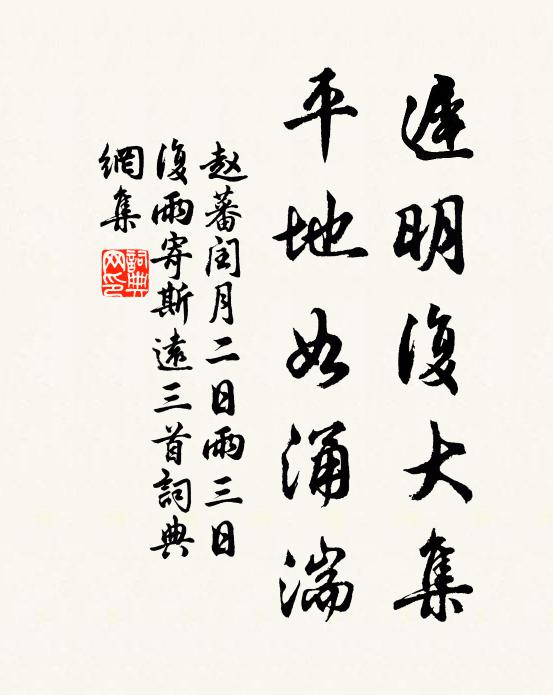 遲明復大集
平地如涌湍
赵蕃閏月二日雨三日
復雨寄斯遠三首詞典
網集
詞典网印